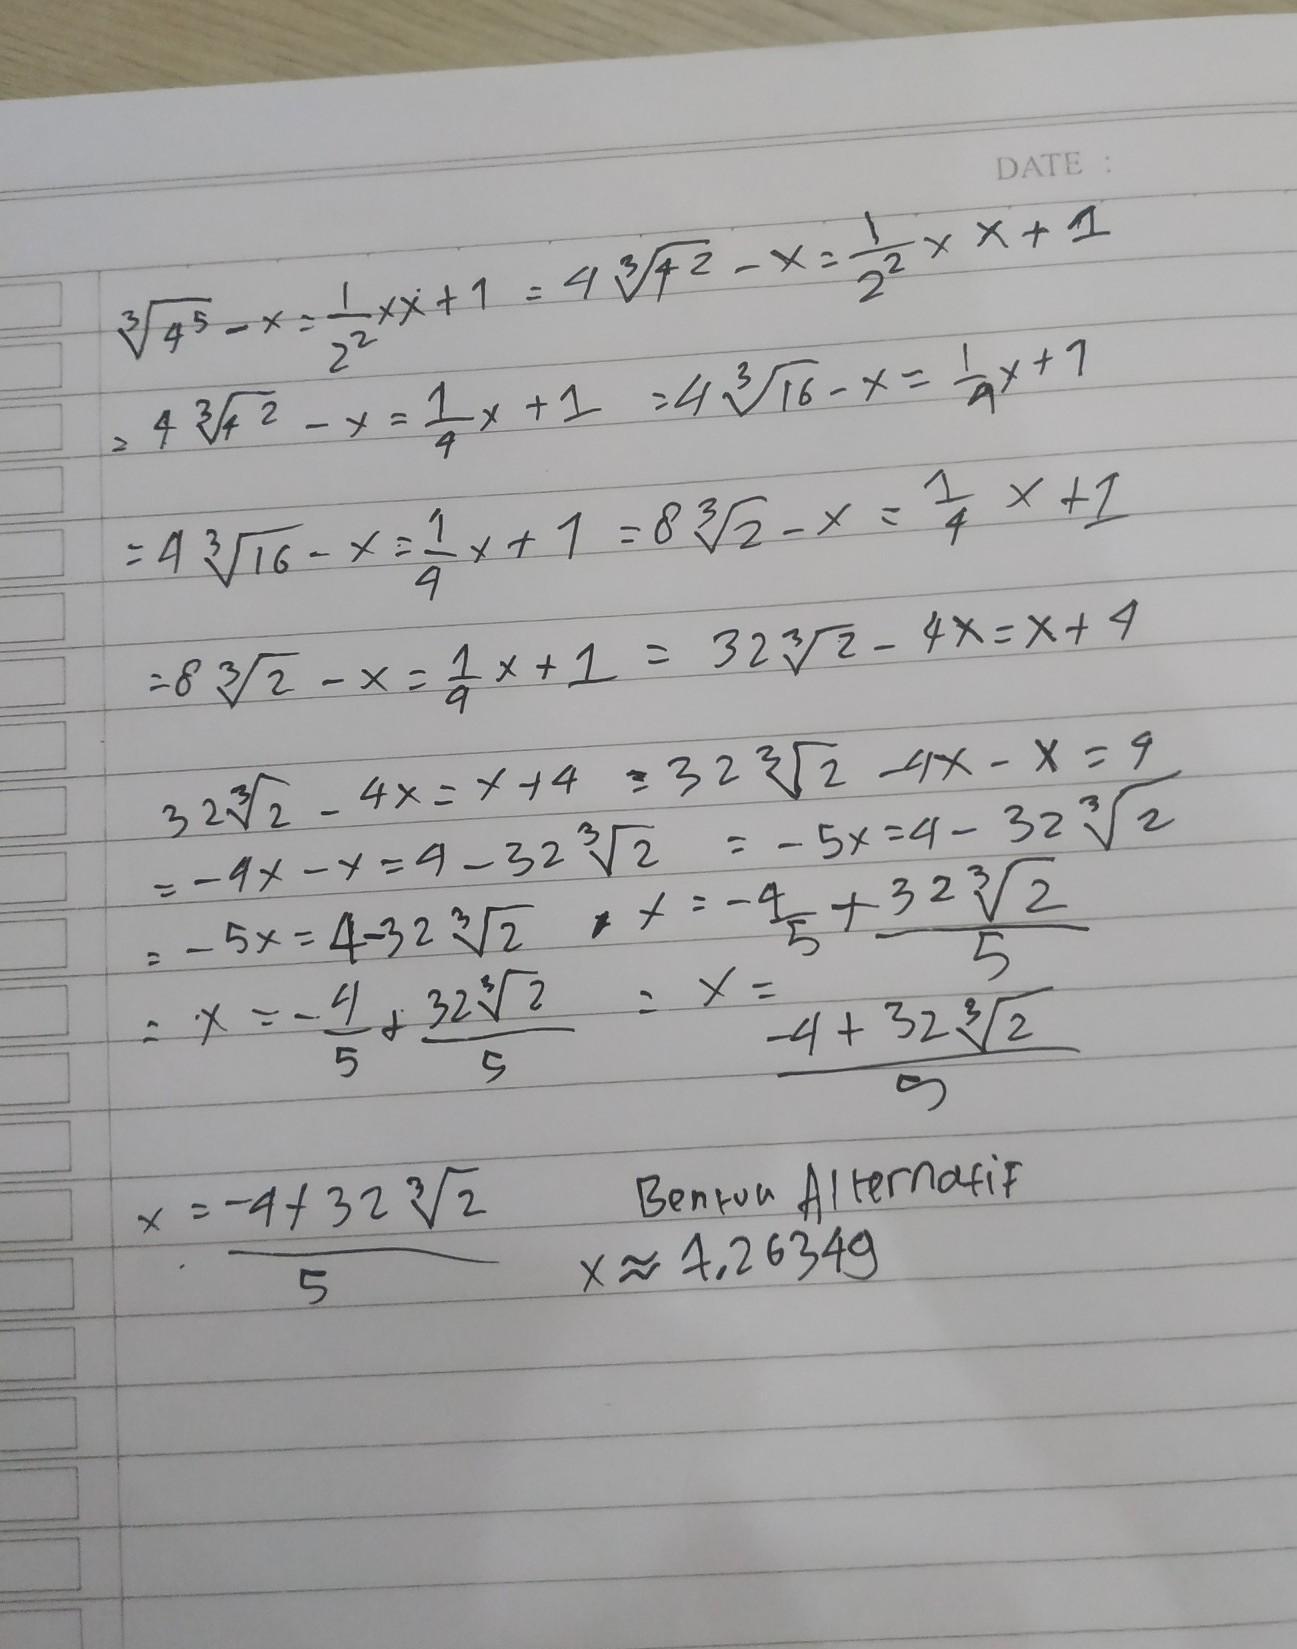 DATE :
∛4⁵ - x = 1/2² x x + 1 = 4∛4² - x = 1/2² x x + 1
= 4∛4² - x = 1/4 x + 1 = 4∛16 - x = 1/4 x + 1
= 4∛16 - x = 1/4 x + 1 = 8∛2 - x = 1/4 x + 1
= 8∛2 - x = 1/4 x + 1 = 32∛2 - 4x = x + 4
32∛2 - 4x = x + 4 = 32∛2 - 4x - x = 4
= -4x - x = 4 - 32∛2 = -5x = 4 - 32∛2
= -5x = 4 - 32∛2 , x = -4/5 + 32∛2/5
= x = -4/5 + 32∛2/5 = x = (-4 + 32∛2)/5
x = (-4 + 32∛2)/5 Bentuk Alternatif
x ≈ 7,26349